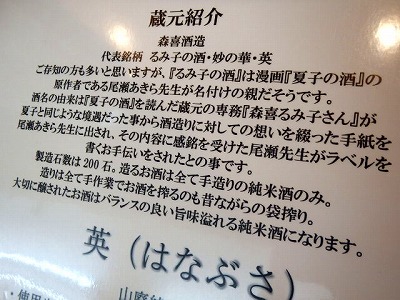 蔵元紹介
森喜酒造
代表銘柄 るみ子の酒・妙の華・英
ご存知の方も多いと思いますが、『るみ子の酒』は漫画『夏子の酒』の
原作者である尾瀬あきら先生が名付けの親だそうです。
酒名の由来は『夏子の酒』を読んだ蔵元の専務『森喜るみ子さん』が
夏子と同じような境遇だった事から酒造りに対しての想いを綴った手紙を
尾瀬あきら先生に出され、その内容に感銘を受けた尾瀬先生がラベルを
書くお手伝いをされたとの事です。
製造石数は200石。造るお酒は全て手造りの純米酒のみ。
造りは全て手作業でお酒を搾るのも昔ながらの袋搾り。
大切に醸されたお酒はバランスの良い旨味溢れる純米酒になります。
英(はなぶさ)